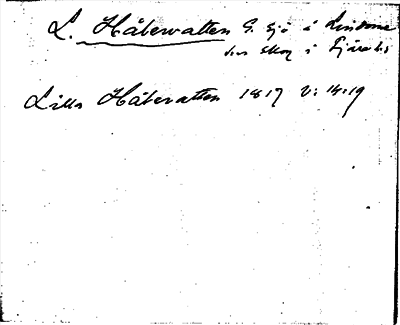 L. Håbevatten G. sjö å Lindome
skog i Fjärås
Lilla Håbevatten 1817 V: 18:19